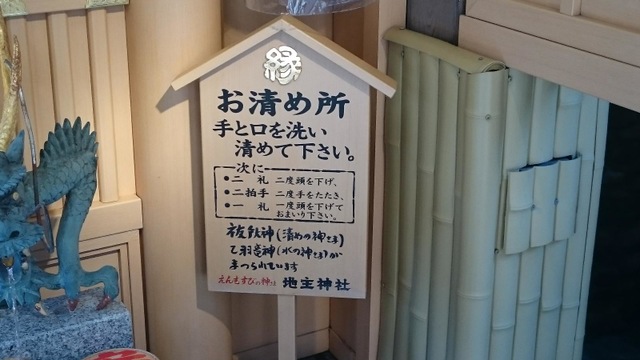 縁
お清め所
手と口を洗い
清めて下さい。
次に
●二 礼 二度頭を下げ、
●二拍手 二度手をたたき、
●一 礼 一度頭を下げて
おまいり下さい。
祓戸神(清めの神さま)
乙羽竜神(水の神さま)が
まつられています
えんむすびの神さま 地主神社